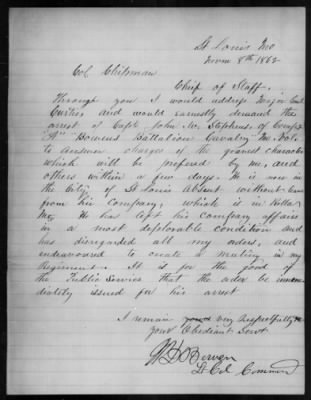 St Louis Mo
Novm 8th 1862
Col Chipman
Chief of Staff.
Through you I would address Major Genl
Curtis, and would earnestly demand the
arrest of Capt John W. Stephens, of Comp
"A" Bowens Battalion Cavalry Mo Vols
to answer charges of the gravest character
which will be prefered by me, and
others within a few days. He is now in
the City of St Louis Absent without leave
from his Company, which is in Rolla
Mo, He has left his company affairs
in a most deplorable condition and
has disregarded all my orders, and
endeavoured to create a mutiny in my
Regiment. It is for the good of
the Public Service that the order be imme
diately issued for his arrest
I remain very respectfully
your Obediant Servt
W D Bowen
Lt Col Command